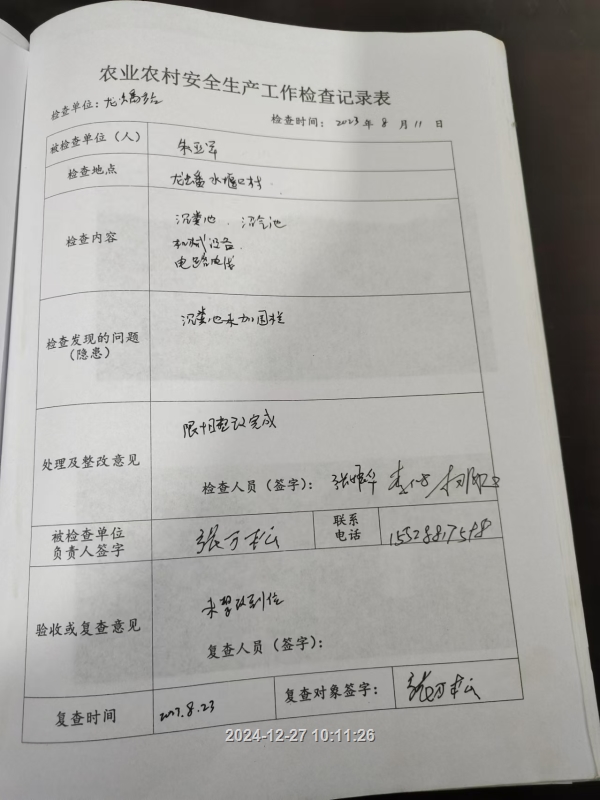 农业农村安全生产工作检查记录表
检查单位：龙蟠站
检查时间：2023年8月11日
被检查单位（人） 朱亚军
检查地点 龙蟠水堰口村
检查内容 沉粪池、沼气池
机械设备
电路电线
检查发现的问题
（隐患） 沉粪池未加围栏
处理及整改意见 限十日整改完成
检查人员（签字）：
被检查单位
负责人签字 张万松 联系
电话 15528817598
验收或复查意见 未整改到位
复查人员（签字）：
复查时间 8.23 复查对象签字： 张万松
2024-12-27 10:11:26